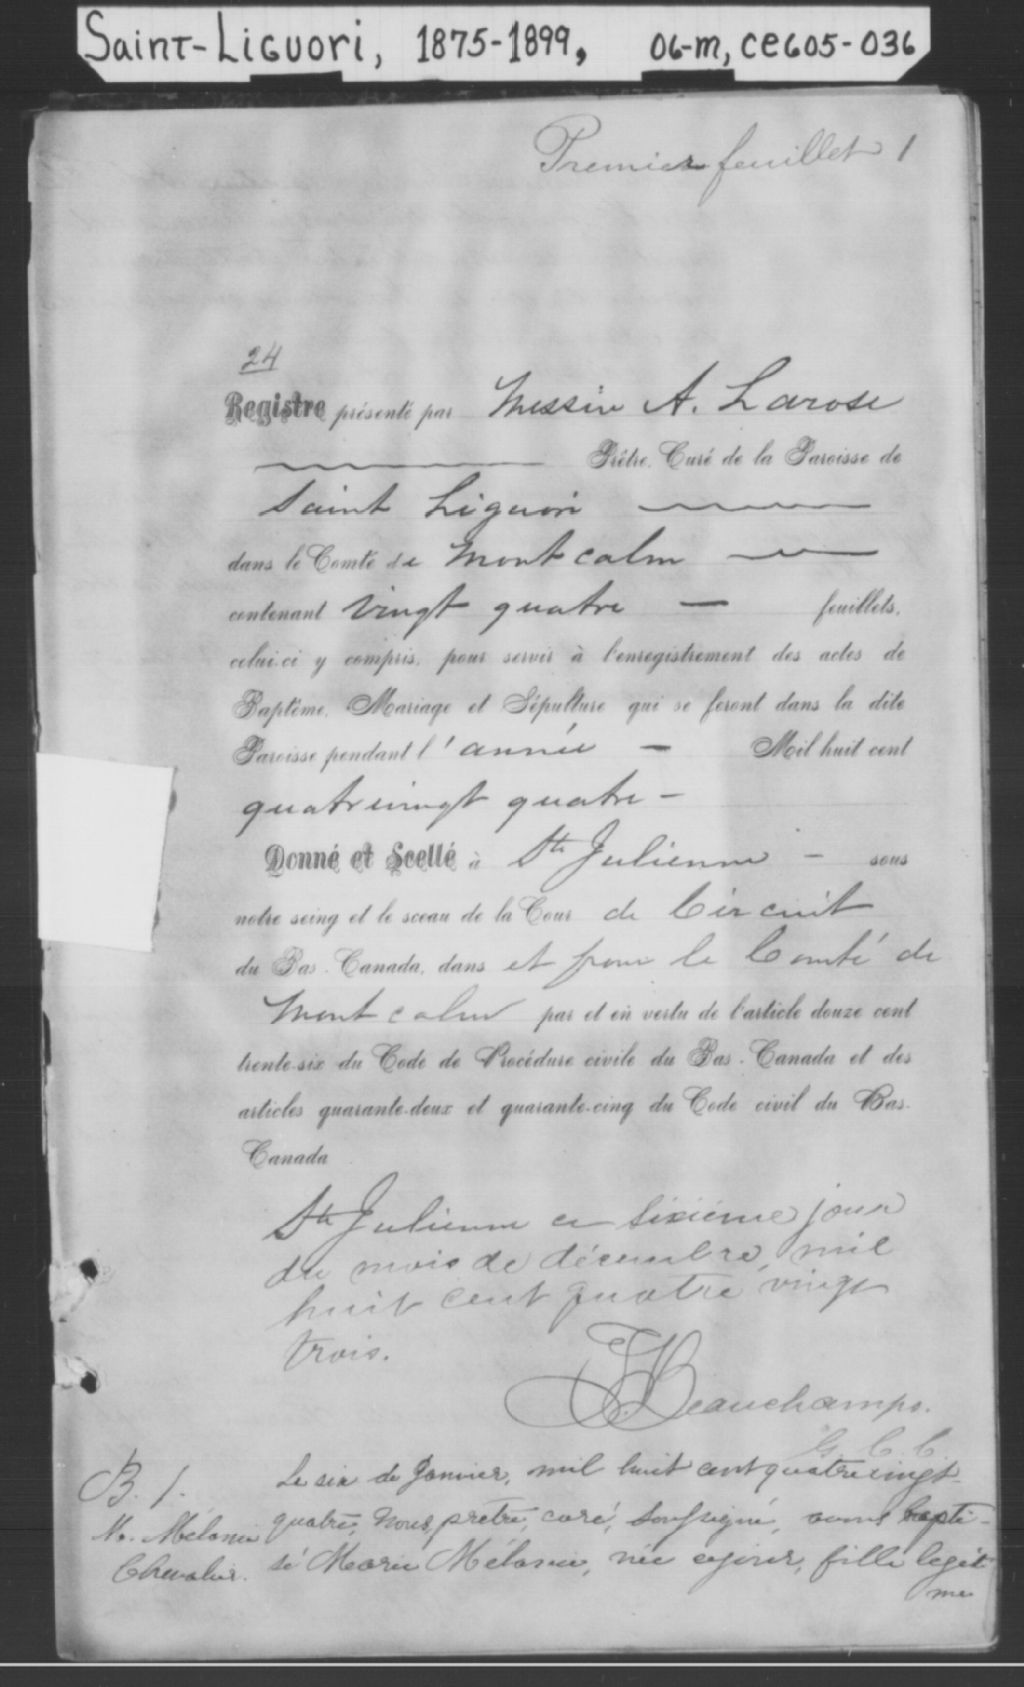 Saint-Liguori, 1875-1899, 06-M, CE605-036
Premier feuillet 1
24
Registre présenté par Messire A. Larose
Prêtre, Curé de la Paroisse de
Saint Liguori
dans le Comté de Montcalm
contenant vingt quatre feuillets,
celui-ci y compris, pour servir à l'enregistrement des actes de
Baptême, Mariage et Sépulture qui se feront dans la dite
Paroisse pendant l'année Mil huit cent
quatrevingt quatre -
Donné et Scellé à Ste Julienne - sous
notre seing et le sceau de la Cour de Circuit
du Bas-Canada, dans et pour le Comté de
Montcalm par et en vertu de l'article douze cent
trente-six du Code de Procédure civile du Bas-Canada et des
articles quarante-deux et quarante-cinq du Code civil du Bas-
Canada
Ste Julienne ce sixième jour
du mois de décembre mil
huit cent quatre vingt
trois.
Beauchamps.
G. C. C.
B. 1. Le six de Janvier, mil huit cent quatrevingt
M. Mélanie quatre, Nous, prêtre, curé, soussigné, avons bapti-
Chevalier. sé Marie Mélanie, née hier, fille légiti
me